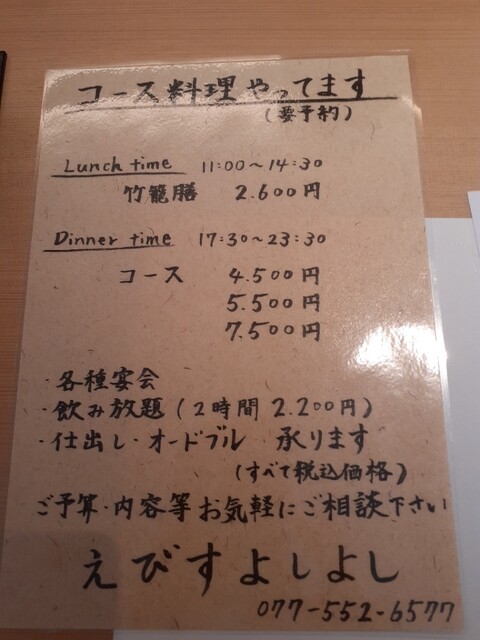 コース料理やってます
(要予約)
Lunch time 11:00~14:30
竹籠膳 2.600円
Dinner time 17:30~23:30
コース 4.500円
5.500円
7.500円
・各種宴会
・飲み放題(2時間 2.200円)
・仕出し・オードブル 承ります
(すべて税込価格)
ご予算・内容等お気軽にご相談下さい
えびすよしよし
077-552-6577